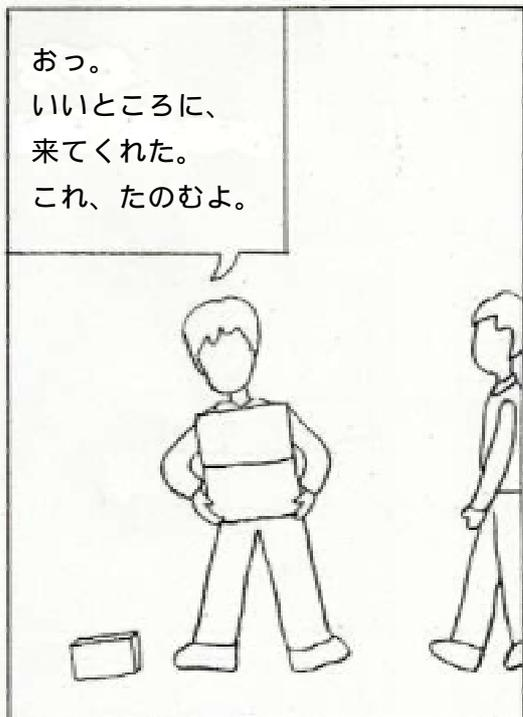 おっ。
いいところに、
来てくれた。
これ、たのむよ。